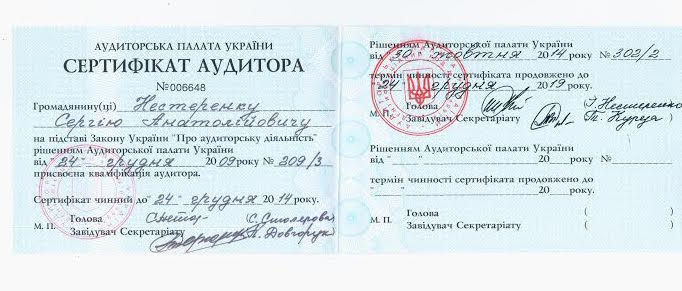 АУДИТОРСЬКА ПАЛАТА УКРАЇНИ
СЕРТИФІКАТ АУДИТОРА
№006648
Громадянину(ці) Нестеренку
Сергію Анатолійовичу
на підставі Закону України "Про аудиторську діяльність"
рішенням Аудиторської палати України
від "24" грудня 2009 року № 209/3
присвоєна кваліфікація аудитора.
Сертифікат чинний до "24" грудня 2014 року.
Голова
М. П. Завідувач Секретаріату
Рішенням Аудиторської палати України
від "30" жовтня 2014 року № 302/2
термін чинності сертифіката продовжено до
"24" грудня 2019 року.
Голова (І. Нестеренко
М. П. Завідувач Секретаріату
Рішенням Аудиторської палати України
від "__"__________ 20___ року №
термін чинності сертифіката продовжено до
"__"__________ 20___ року.
Голова ( )
М. П. Завідувач Секретаріату ( )